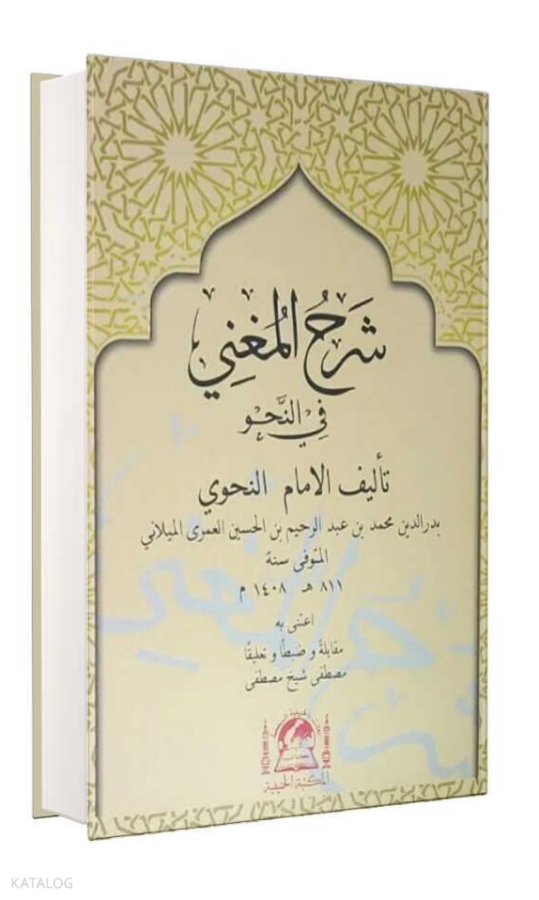 شَرْحُ المُغْنِي
فِي النَّحْوِ
تأليف الامام النحوي
بدرالدين محمد بن عبد الرحيم بن الحسين العمرى الميلاني
المتوفى سنة
٨١١ هـ ١٤٠٨ م
اعتنى به
مقابلةً و ضبطًا و تعليقًا
مصطفى شيخ مصطفى
المكتبة الحنيفية
KATALOG